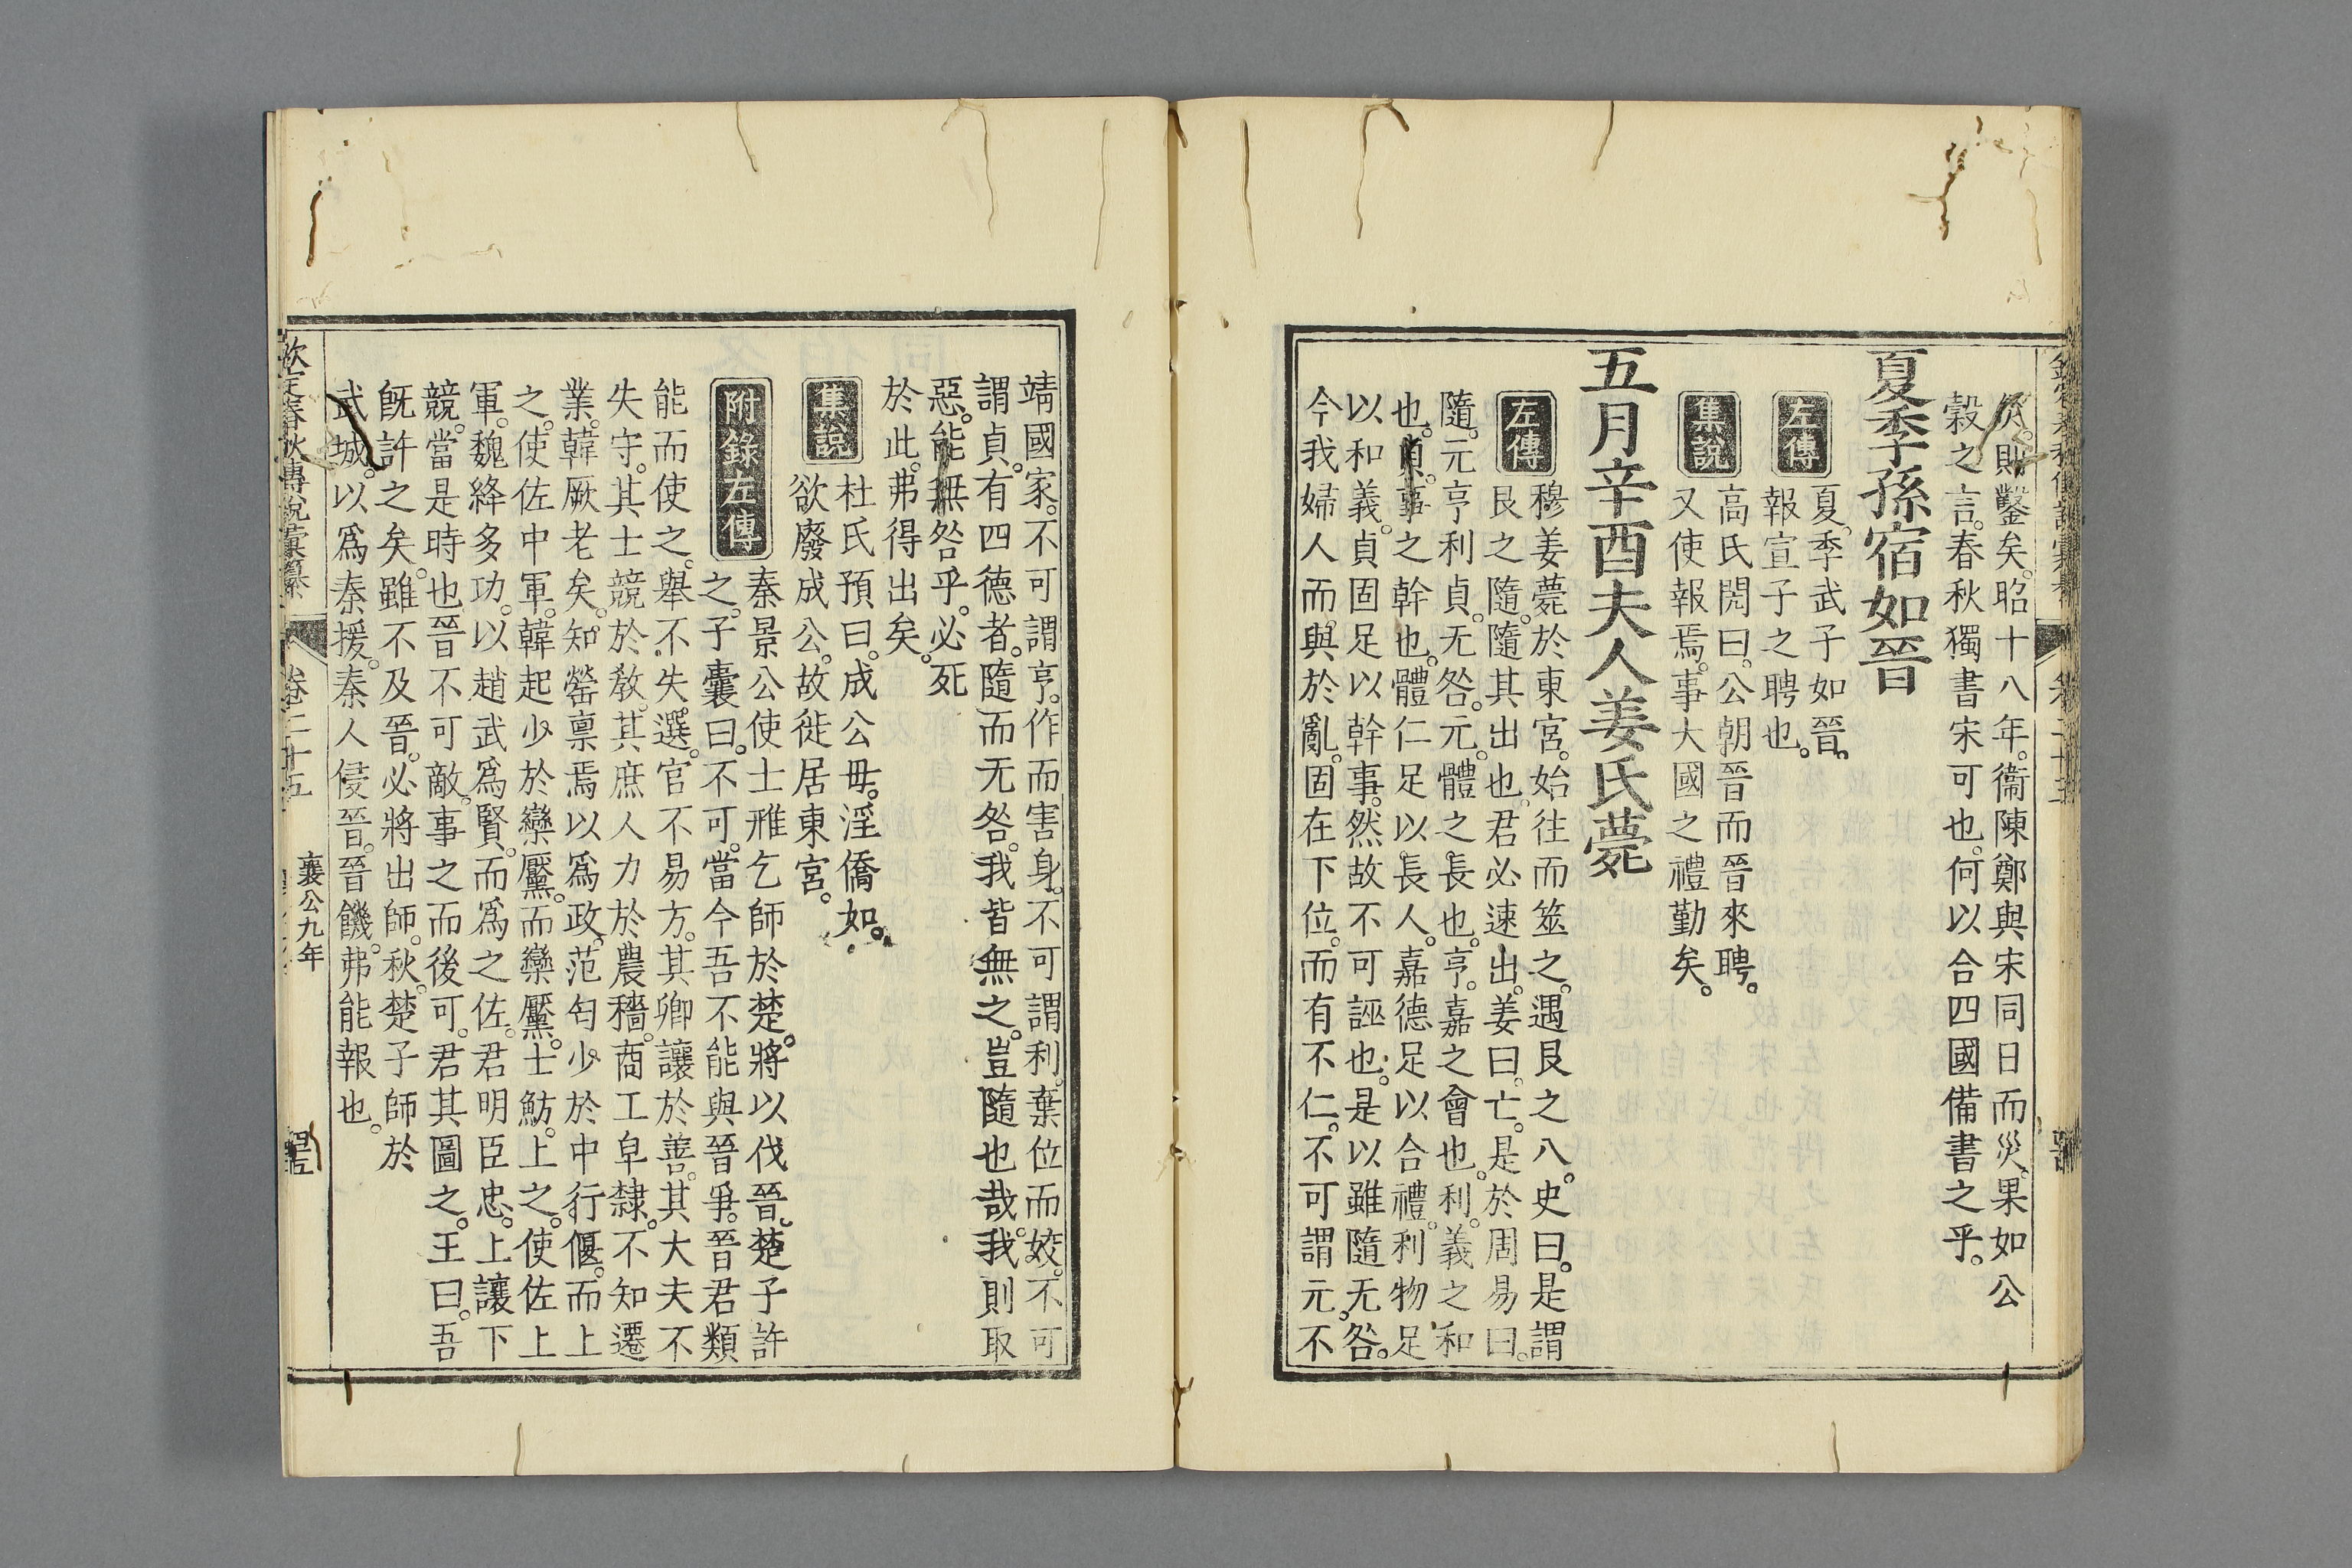 災。則鑿矣。昭十八年。衞陳鄭與宋同日而災。果如公
穀之言。春秋獨書宋可也。何以合四國備書之乎。
夏季孫宿如晉
左傳
夏。季武子如晉。
報宣子之聘也。
集說
高氏閌曰。公朝晉而晉來聘。
又使報焉。事大國之禮勤矣。
五月辛酉夫人姜氏薨
左傳
穆姜薨於東宮。始往而筮之。遇艮之八。史曰。是謂
艮之隨。隨其出也。君必速出。姜曰。亡。是於周易曰。
隨。元亨利貞。无咎。元。體之長也。亨。嘉之會也。利。義之和
也。貞。事之幹也。體仁足以長人。嘉德足以合禮。利物足
以和義。貞固足以幹事。然故不可誣也。是以雖隨无咎。
今我婦人而與於亂。固在下位。而有不仁。不可謂元。不
靖國家。不可謂亨。作而害身。不可謂利。棄位而姣。不可
謂貞。有四德者。隨而无咎。我皆無之。豈隨也哉。我則取
惡。能無咎乎。必死
於此。弗得出矣。
集說
杜氏預曰。成公母。淫僑如。
欲廢成公。故徙居東宮。
附錄左傳
秦景公使士雃乞師於楚。將以伐晉。楚子許
之。子囊曰。不可。當今吾不能與晉爭。晉君類
能而使之。舉不失選。官不易方。其卿讓於善。其大夫不
失守。其士競於敎。其庶人力於農穡。商工皁隸。不知遷
業。韓厥老矣。知罃禀焉以爲政。范匄少於中行偃。而上
之。使佐中軍。韓起少於欒黶。而欒黶。士魴。上之。使佐上
軍。魏絳多功。以趙武爲賢。而爲之佐。君明臣忠。上讓下
競。當是時也。晉不可敵。事之而後可。君其圖之。王曰。吾
旣許之矣。雖不及晉。必將出師。秋。楚子師於
武城。以爲秦援。秦人侵晉。晉饑。弗能報也。
欽定春秋傳說彙纂
卷二十五
襄公九年